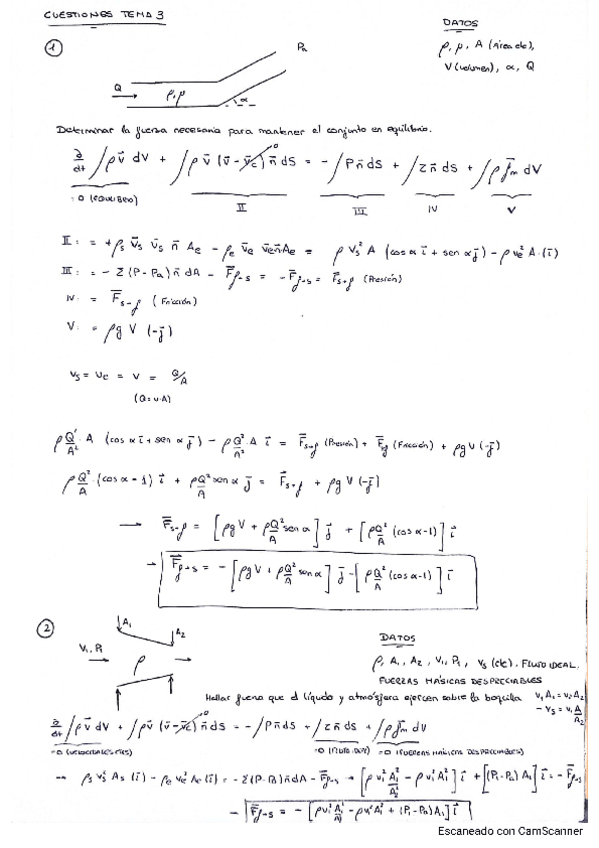 CUESTIONES TEMA 3
DATOS
① Pa ρ, μ, A (área cte),
V (volumen), α, Q
Q → ρ, μ α
Determinar la fuerza necesaria para mantener el conjunto en equilibrio.
∂/∂t ∫ρv⃗ dV + ∫ρv⃗ (v⃗ - v⃗c) n⃗ dS = - ∫P n⃗ dS + ∫τ n⃗ dS + ∫ρ f⃗m dV
= 0 (EQUILIBRIO) II III IV V
II : = + ρs v⃗s v⃗s n⃗ Ae - ρe v⃗e v⃗e n⃗ Ae = ρ Vs² A (cos α i⃗ + sen α j⃗) - ρ ve² A · (i⃗)
III : = - Σ (P - Pa) n⃗ dA - F⃗f→s = - F⃗f→s = F⃗s→f (Presión)
IV : = F⃗s→f (Fricción)
V : = ρ g V (-j⃗)
vs = ve = v = Q/A
(Q = v·A)
ρ Q²/A² · A (cos α i⃗ + sen α j⃗) - ρ Q²/A² · A i⃗ = F⃗s→f (Presión) + F⃗f (Fricción) + ρ g V (-j⃗)
ρ Q²/A · (cos α - 1) i⃗ + ρ Q²/A sen α j⃗ = F⃗s→f + ρ g V (-j⃗)
→ F⃗s→f = [ρ g V + ρ Q²/A sen α] j⃗ + [ρ Q²/A (cos α - 1)] i⃗
→ F⃗f→s = - [ρ g V + ρ Q²/A sen α] j⃗ - [ρ Q²/A (cos α - 1)] i⃗
② A₁ A₂ DATOS
V₁, P₁ → ρ → ρ, A₁, A₂, V₁, P₁, vs (cte). FLUIDO IDEAL.
FUERZAS MÁSICAS DESPRECIABLES
Hallar fuerza que el líquido y atmósfera ejercen sobre la boquilla v₁A₁ = v₂A₂
→ vs = v₁ A₁/A₂
∂/∂t ∫ρv⃗ dV + ∫ρv⃗ (v⃗ - v⃗c) n⃗ dS = - ∫P n⃗ dS + ∫τ n⃗ dS + ∫ρ f⃗m dV
= 0 (FUERZAS MÁSICAS DESPRECIABLES)
→ ρs vs² As (i⃗) - ρe ve² Ae (i⃗) = - Σ (P - Pa) n⃗ dA - F⃗f→s → [ρ v₁² A₁²/A₂ - ρ v₁² A₁] i⃗ + [(P₁ - Pa) A₁] i⃗ = - F⃗f→s
→ F⃗f→s = - [ρ v₁² A₁²/A₂ - ρ v₁² A₁ + (P₁ - Pa) A₁] i⃗
Escaneado con CamScanner